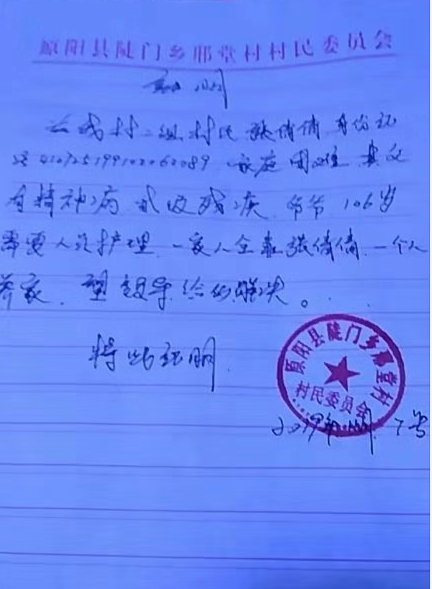 原阳县陡门乡邢堂村村民委员会
证明
兹我村二组村民张倩倩身份证
号410725199102062089家庭困难其父
有精神病贰级残疾爷爷106岁
需要人员护理.一家人全靠张倩倩一个人
养家.望领导给的解决。
特此证明
原阳县陡门乡邢堂村
村民委员会
2019年 7号